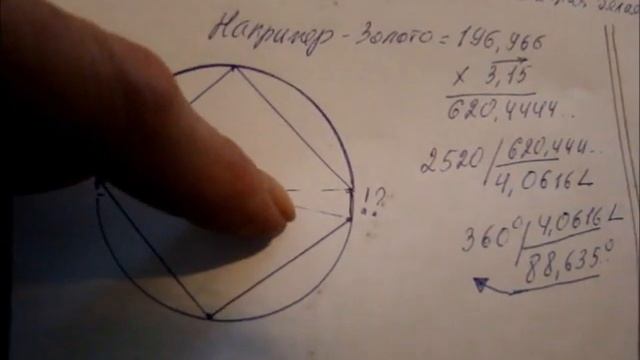 Например - Золото = 196,966
x 3,15
620,4444...
2520 620,444...
4,0616L
!?
360° 4,0616L
88,635°